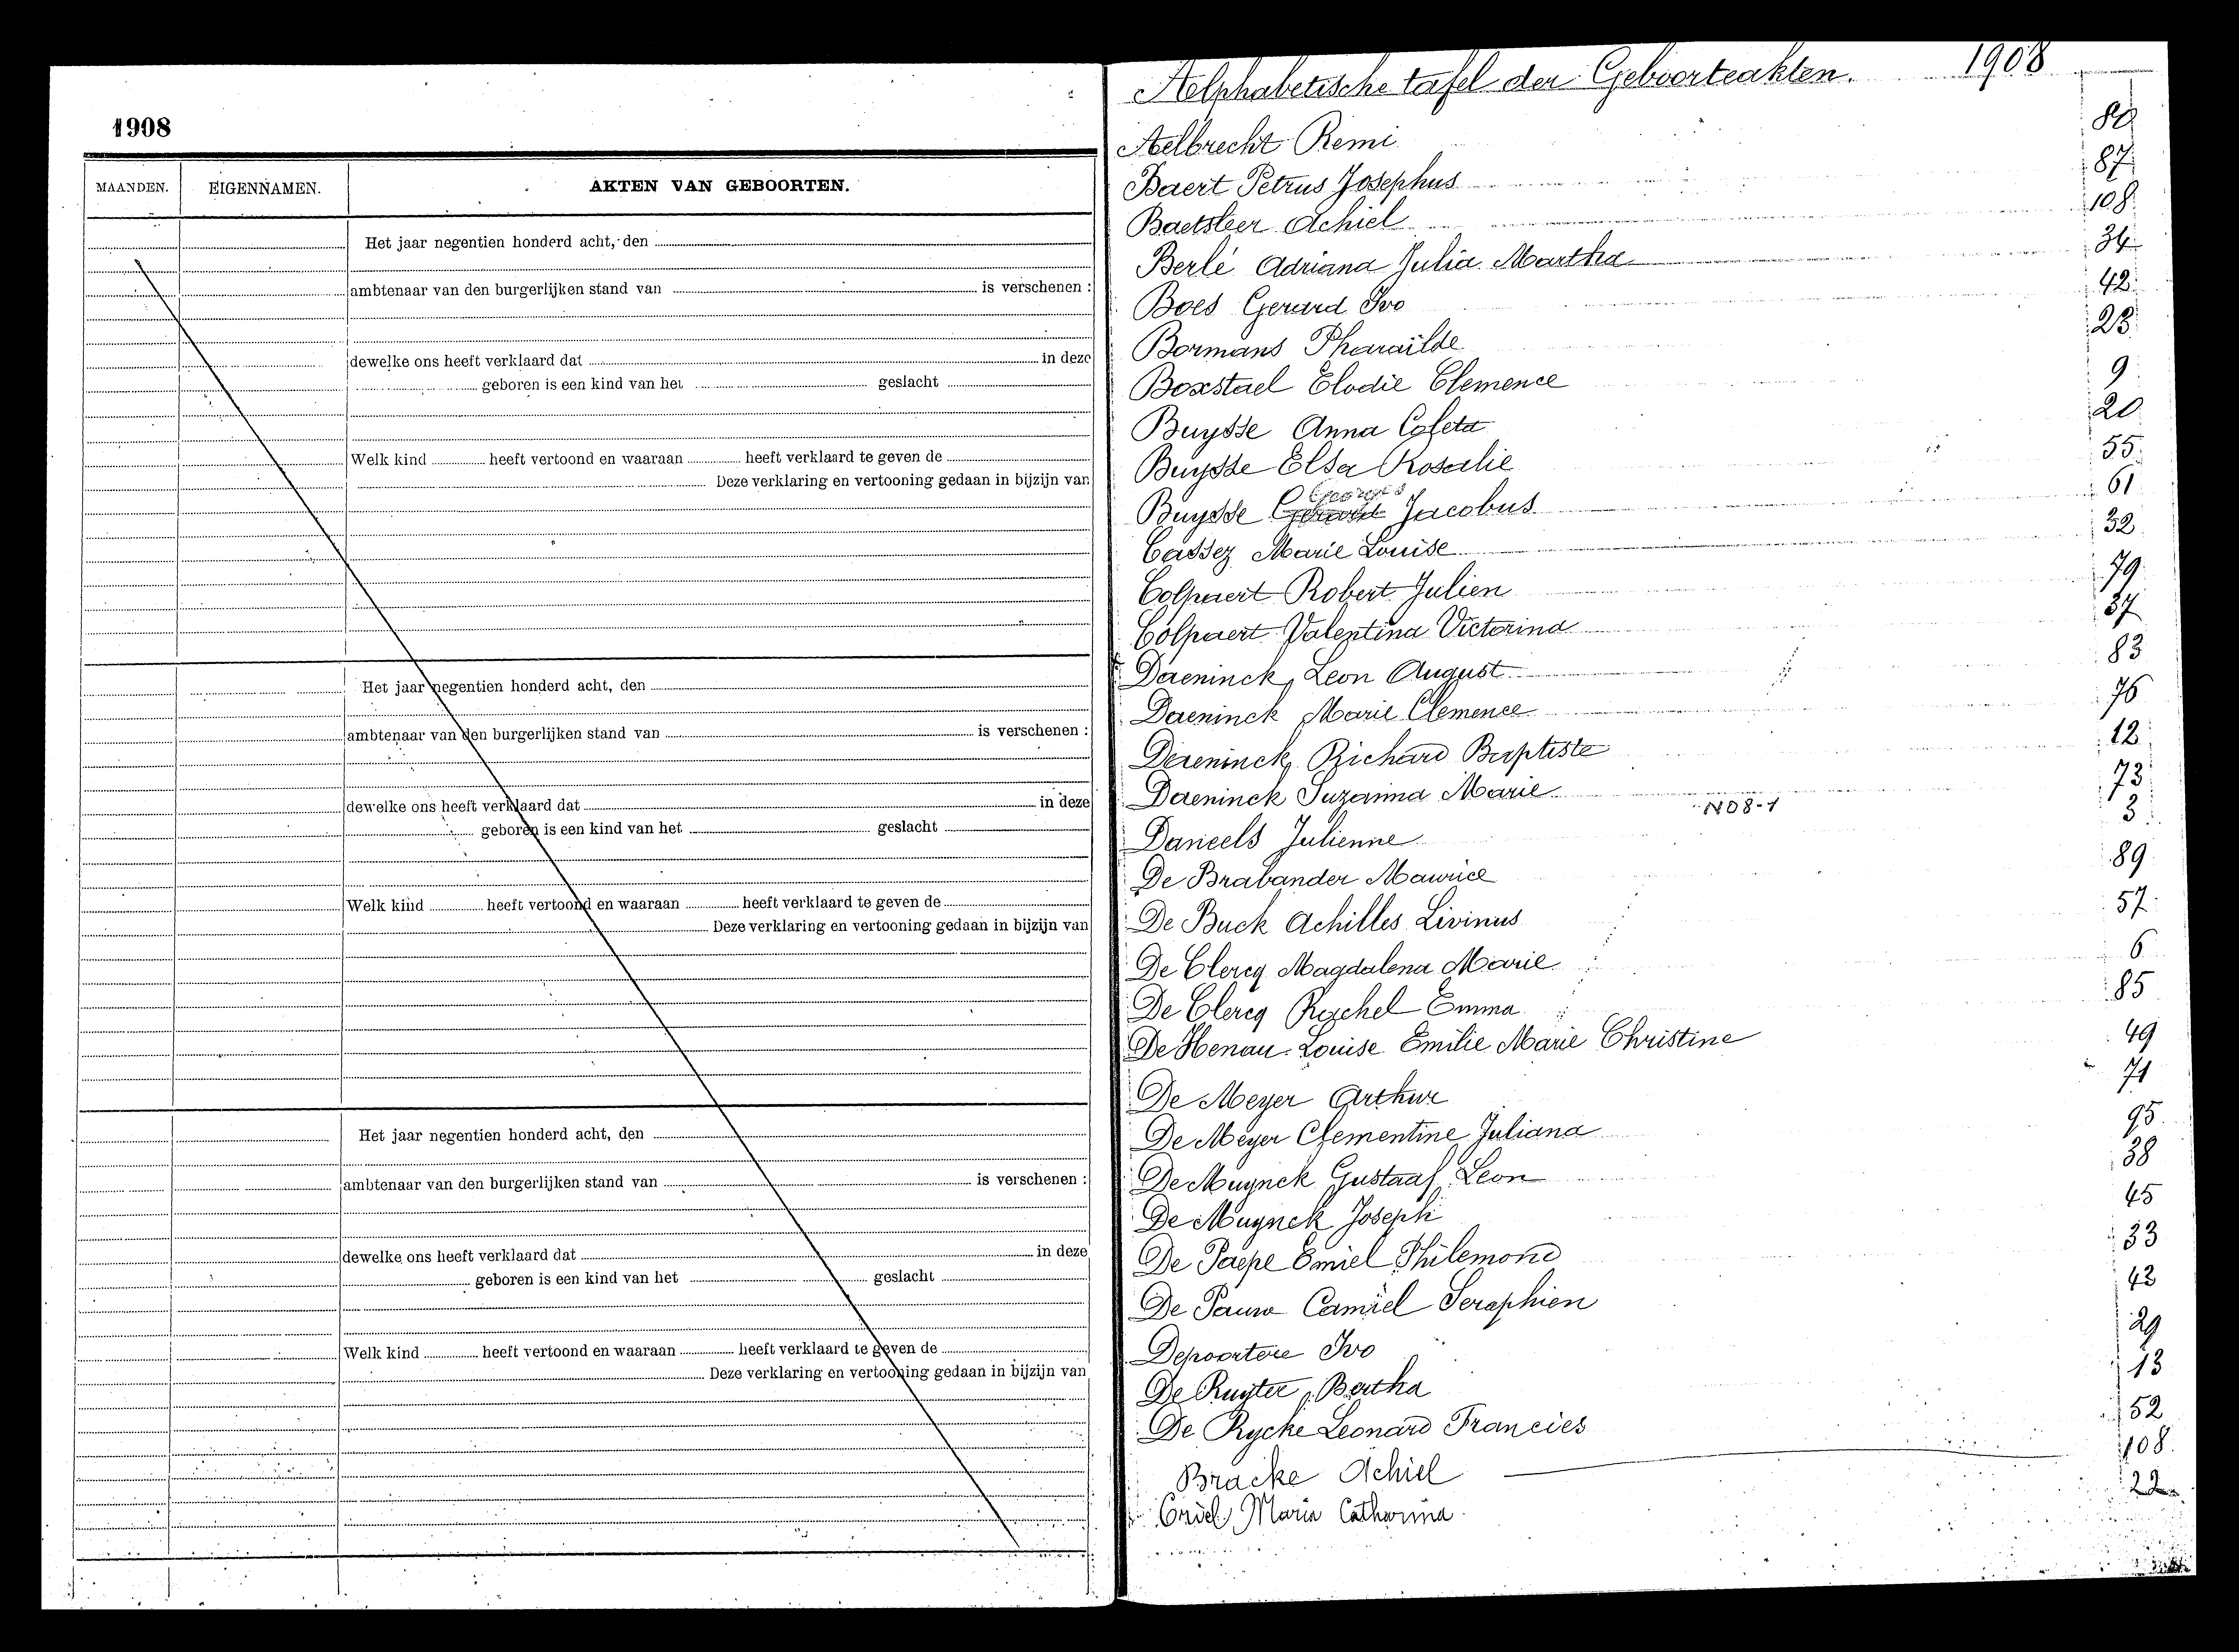 1908
MAANDEN. EIGENNAMEN. AKTEN VAN GEBOORTEN.
Het jaar negentien honderd acht, den
ambtenaar van den burgerlijken stand van is verschenen :
dewelke ons heeft verklaard dat in deze
geboren is een kind van het geslacht
Welk kind heeft vertoond en waaraan heeft verklaard te geven de
Deze verklaring en vertooning gedaan in bijzijn van
Het jaar negentien honderd acht, den
ambtenaar van den burgerlijken stand van is verschenen :
dewelke ons heeft verklaard dat in deze
geboren is een kind van het geslacht
Welk kind heeft vertoond en waaraan heeft verklaard te geven de
Deze verklaring en vertooning gedaan in bijzijn van
Het jaar negentien honderd acht, den
ambtenaar van den burgerlijken stand van is verschenen :
dewelke ons heeft verklaard dat in deze
geboren is een kind van het geslacht
Welk kind heeft vertoond en waaraan heeft verklaard te geven de
Deze verklaring en vertooning gedaan in bijzijn van
Aelphabetische tafel der Geboorteakten. 1908
Aelbrecht Remi
Baert Petrus Josephus 87
Baetsleer Achiel 108
Berlé Adriana Julia Martha 34
Boes Gerard Ivo 42
Bormans Pharaïlde 23
Boxstael Elodie Clemence 9
Buysse Anna Coleta 20
Buysse Elsa Rosalie 55
Georges
Buysse Gerard Jacobus 61
Cassez Marie Louise 32
Colpaert Robert Julien 79
Colpaert Valentina Victorina 37
Daeninck, Leon August 83
Daeninck Marie Clemence 76
Daeninck Richard Baptiste 12
Daeninck Suzanna Marie 73
N08-1
Daneels Julienne 3
De Brabander Maurice 89
De Buck Achilles Livinus 57
De Clercq Magdalena Marie 6
De Clercq Rachel Emma 85
De Henau Louise Emilie Marie Christine 49
De Meyer Arthur 71
De Meyer Clementine Juliana 95
De Muynck Gustaaf Leon 38
De Muynck Joseph 45
De Paepe Emiel Philemond 33
De Pauw Camiel Seraphien 43
Depoortere Ivo 29
De Ruyter Bertha 13
De Rycke Leonard Francies 52
Bracke Achiel 108
Maria Catharina 22